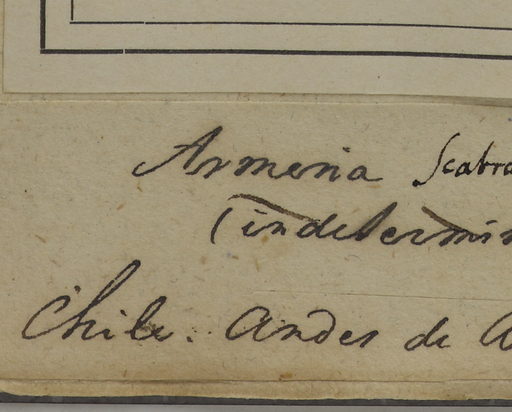 Armeria scabra
(indetermin
Chile. Andes de